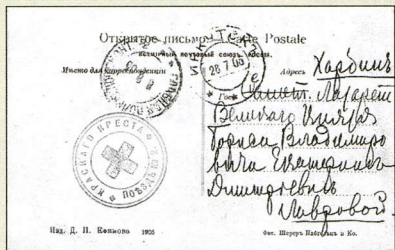 Открытое письмо. Carte Postale
ВСЕМІРНЫЙ ПОЧТОВЫЙ СОЮЗЪ. РОССІЯ.
Мѣсто для корреспонденціи
Адресъ Харбинъ
28 7 05
Лазаретъ
Великаго Князя
Бориса Владимиро
вича Екатеринѣ
Дмитріевнѣ
Лавровой.
КРАСНАГО КРЕСТА
Изд. Д. П. Ефимова 1905
Фот. Шереръ Набгольцъ и Ко.